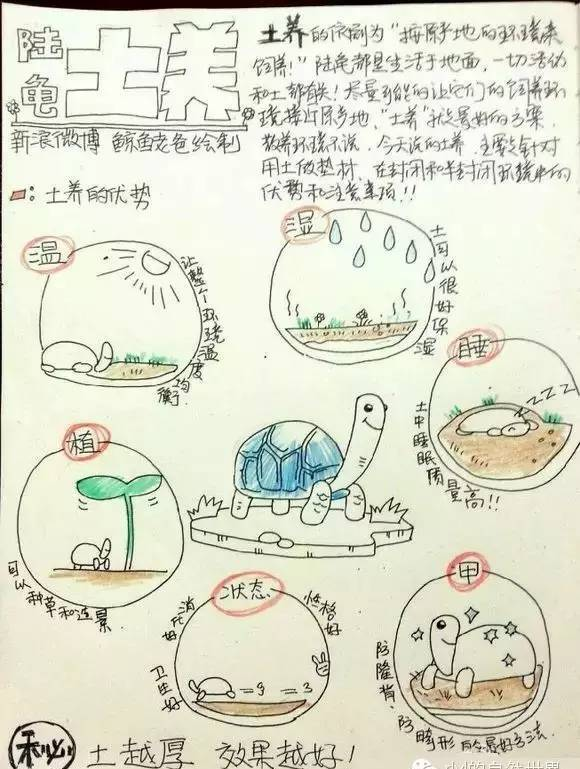 陆龟
土养
新浪微博 鲸鱼老爸绘制
土养的原则为"按原产地的环境来
饲养!"陆龟都是生活于地面,一切活动
和土都有关!尽量可能的让它们的饲养环
境接近原产地,"土养"就是最好的方案.
散养环境不说,今天说的土养,主要是针对
用土做垫材,在封闭和半封闭环境中的
优势和注意事项!!
:土养的优势
温
让整个环境温度均衡
湿
土可以很好保湿
睡
ZZZZ
土中睡眠质量高!!
植
可以种草和造景.
状态
消化好
性格好
卫生好
甲
防隆背.防畸形的最好方法.
土越厚 效果越好!
小小的自然世界